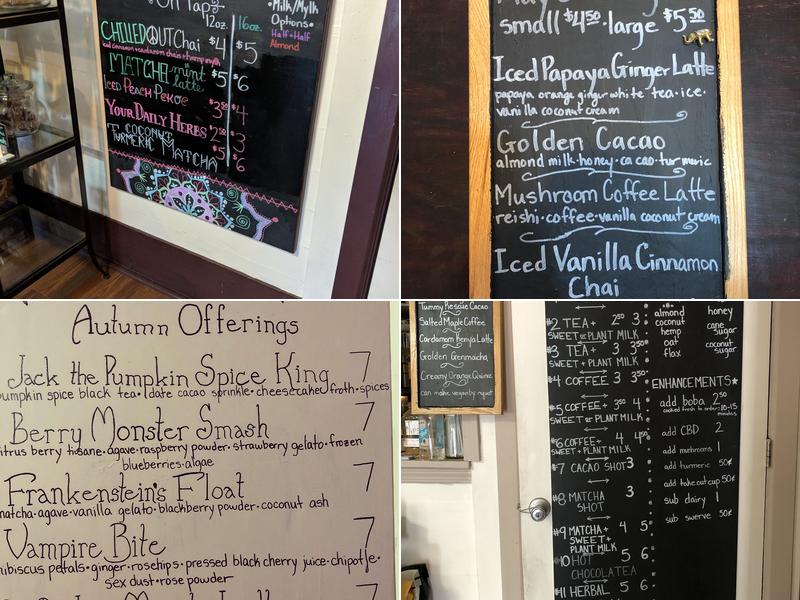 On Tap
12oz. 16oz.
•Milk/Mylk
Options•
Half+Half
Almond
CHILLEDOUT Chai $4 $5
iced cinnamon+cardamom chai+hemp mylk
MATCHA mint $5 $6
latte
ICED PEACH PEKOE $3⁵⁰ $4
YOUR DAILY HERBS $2⁵⁰ $3
COCONUT
TURMERIC MATCHA $5 $6
small $4⁵⁰ · large $5⁵⁰
Iced Papaya Ginger Latte
papaya orange ginger white tea · ice ·
vanilla coconut cream
Golden Cacao
almond milk · honey · cacao · turmeric
Mushroom Coffee Latte
reishi · coffee · vanilla coconut cream
Iced Vanilla Cinnamon
Chai
Autumn Offerings
Jack the Pumpkin Spice King 7
pumpkin spice black tea · date cacao sprinkle · cheesecake froth · spices
Berry Monster Smash 7
citrus berry tisane · agave · raspberry powder · strawberry gelato · frozen
blueberries · algae
Frankenstein's Float 7
matcha · agave · vanilla gelato · blackberry powder · coconut ash
Vampire Bite 7
hibiscus petals · ginger · rosehips · pressed black cherry juice · chipotle ·
sex dust · rose powder
Tummy Rescue Cacao
Salted Maple Coffee
Cardamom Kenya Latte
Golden Genmaicha
Creamy Orange Quinoz
can make vegan by request
#2 TEA+ 2⁵⁰ 3
SWEET OR PLANT MILK
#3 TEA+ 3 3⁵⁰
SWEET+PLANT MILK
#4 COFFEE 3 3⁵⁰
#5 COFFEE+ 3⁵⁰ 4
SWEET OR PLANT MILK
#6 COFFEE+ 4 4⁵⁰
SWEET+PLANT MILK
#7 CACAO SHOT 3
#8 MATCHA 3
SHOT
#9 MATCHA+ 4 5
SWEET+
PLANT MILK
#10 HOT 5 6
CHOCOLATEA
#11 HERBAL 5 6
almond honey
coconut cane
hemp sugar
oat coconut
flax sugar
ENHANCEMENTS★
add boba 2⁵⁰
cooked fresh to order: 10-15
minutes
add CBD 2
add mushrooms 1
add turmeric 50¢
add take out cup 50¢
sub dairy 1
sub swerve 50¢